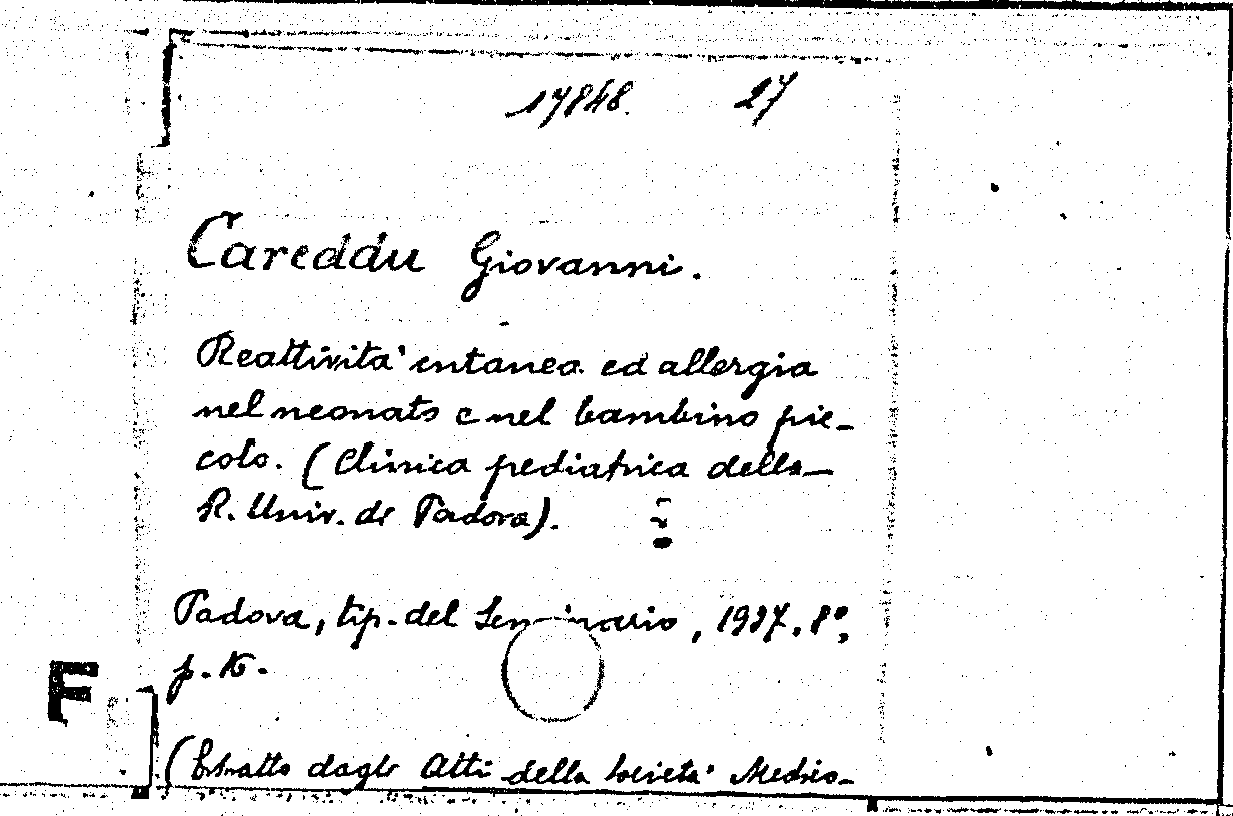 17848. 27
Careddu Giovanni.
Reattività cutanea ed allergia
nel neonato e nel bambino pic-
colo. (Clinica pediatrica della
R. Univ. di Padova).
Padova, tip. del Seminario, 1937. 8°,
p. 16.
F
(Estratto dagli Atti della Società Medico-